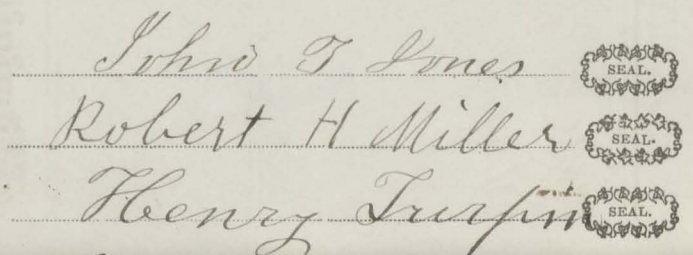 John T Jones SEAL.
Robert H Miller SEAL.
Henry Turpin SEAL.